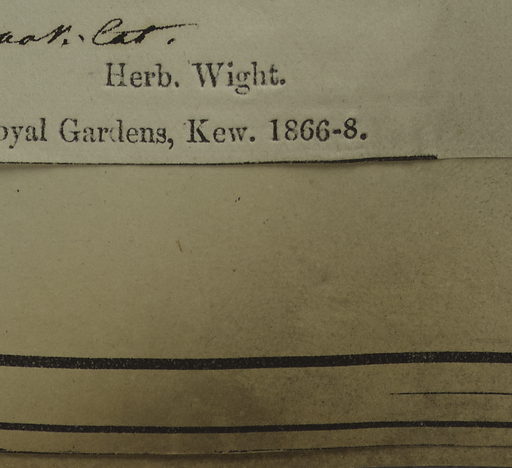 Cat.
Herb. Wight.
oyal Gardens, Kew. 1866-8.